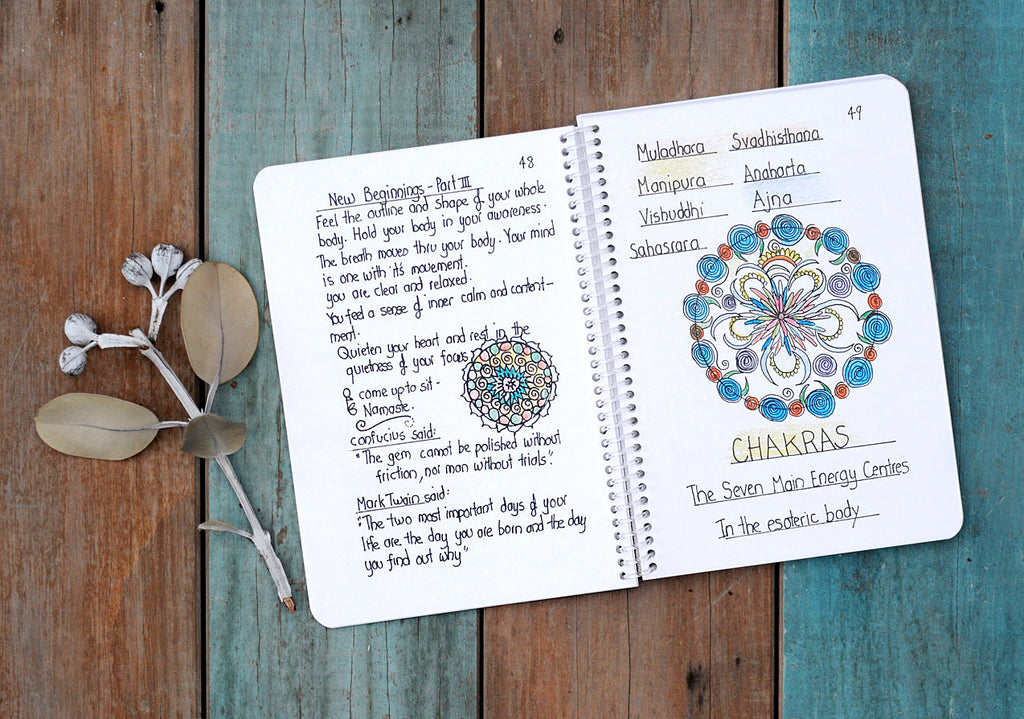 48
New Beginnings - Part III
Feel the outline and shape of your whole
body. Hold your body in your awareness.
The breath moves thru your body. Your mind
is one with it's movement.
you are clear and relaxed.
You feel a sense of inner calm and content-
ment.
Quieten your heart and rest in the
quietness of your focus
& come up to sit -
Namaste.
confucius said:
"The gem cannot be polished without
friction, nor man without trials".
Mark Twain said:
"The two most important days of your
life are the day you are born and the day
you find out why"
49
Muladhara Svadhisthana
Manipura Anaharta
Vishuddhi Ajna
Sahasrara
CHAKRAS
The Seven Main Energy Centres
In the esoteric body